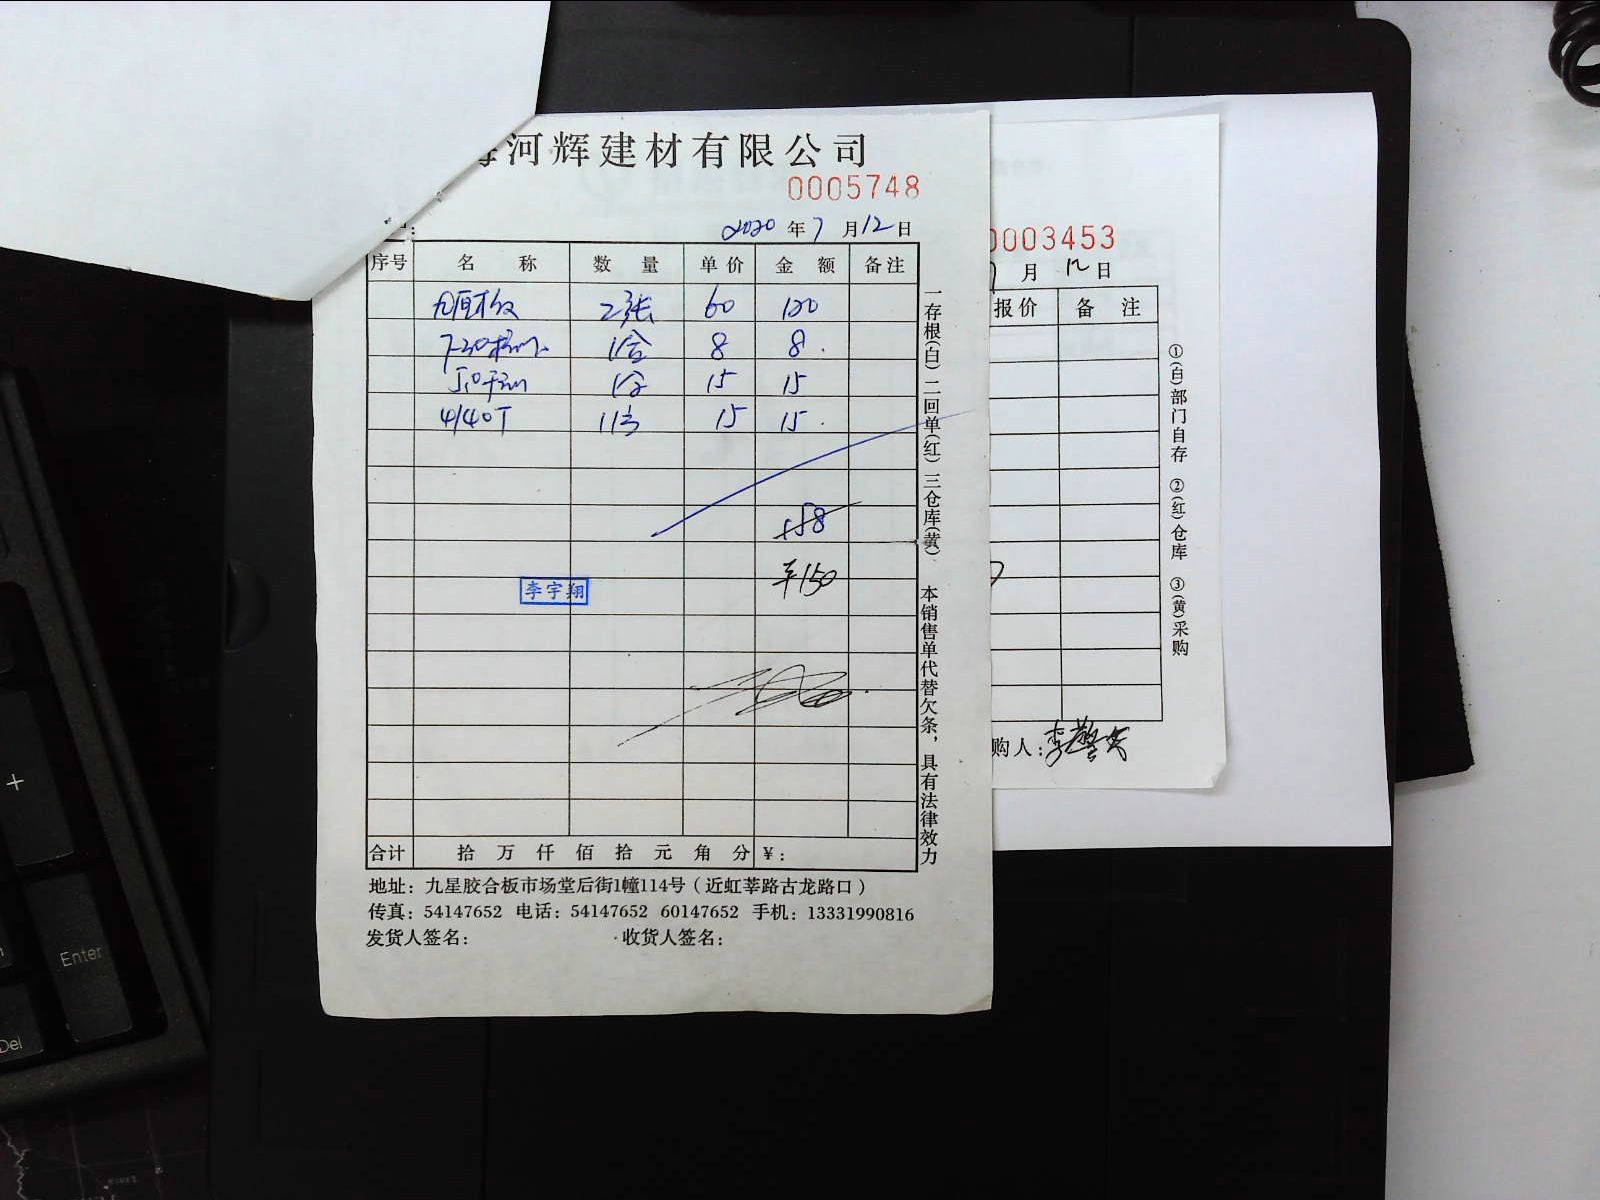 河辉建材有限公司
0005748
2020年7月12日
序号 名称 数量 单价 金额 备注
2张 60 120
1合 8 8.
1合 15 15
4/40T 15 15.
158
¥150
李宇翔
合计 拾 万 仟 佰 拾 元 角 分 ¥:
地址：九星胶合板市场堂后街1幢114号（近虹莘路古龙路口）
传真：54147652 电话：54147652 60147652 手机：13331990816
发货人签名： 收货人签名：
一存根(白) 二回单(红) 三仓库(黄) 本销售单代替欠条，具有法律效力
0003453
7月12日
报价 备注
①(白)部门自存 ②(红)仓库 ③(黄)采购
购人：
+
Enter
Del